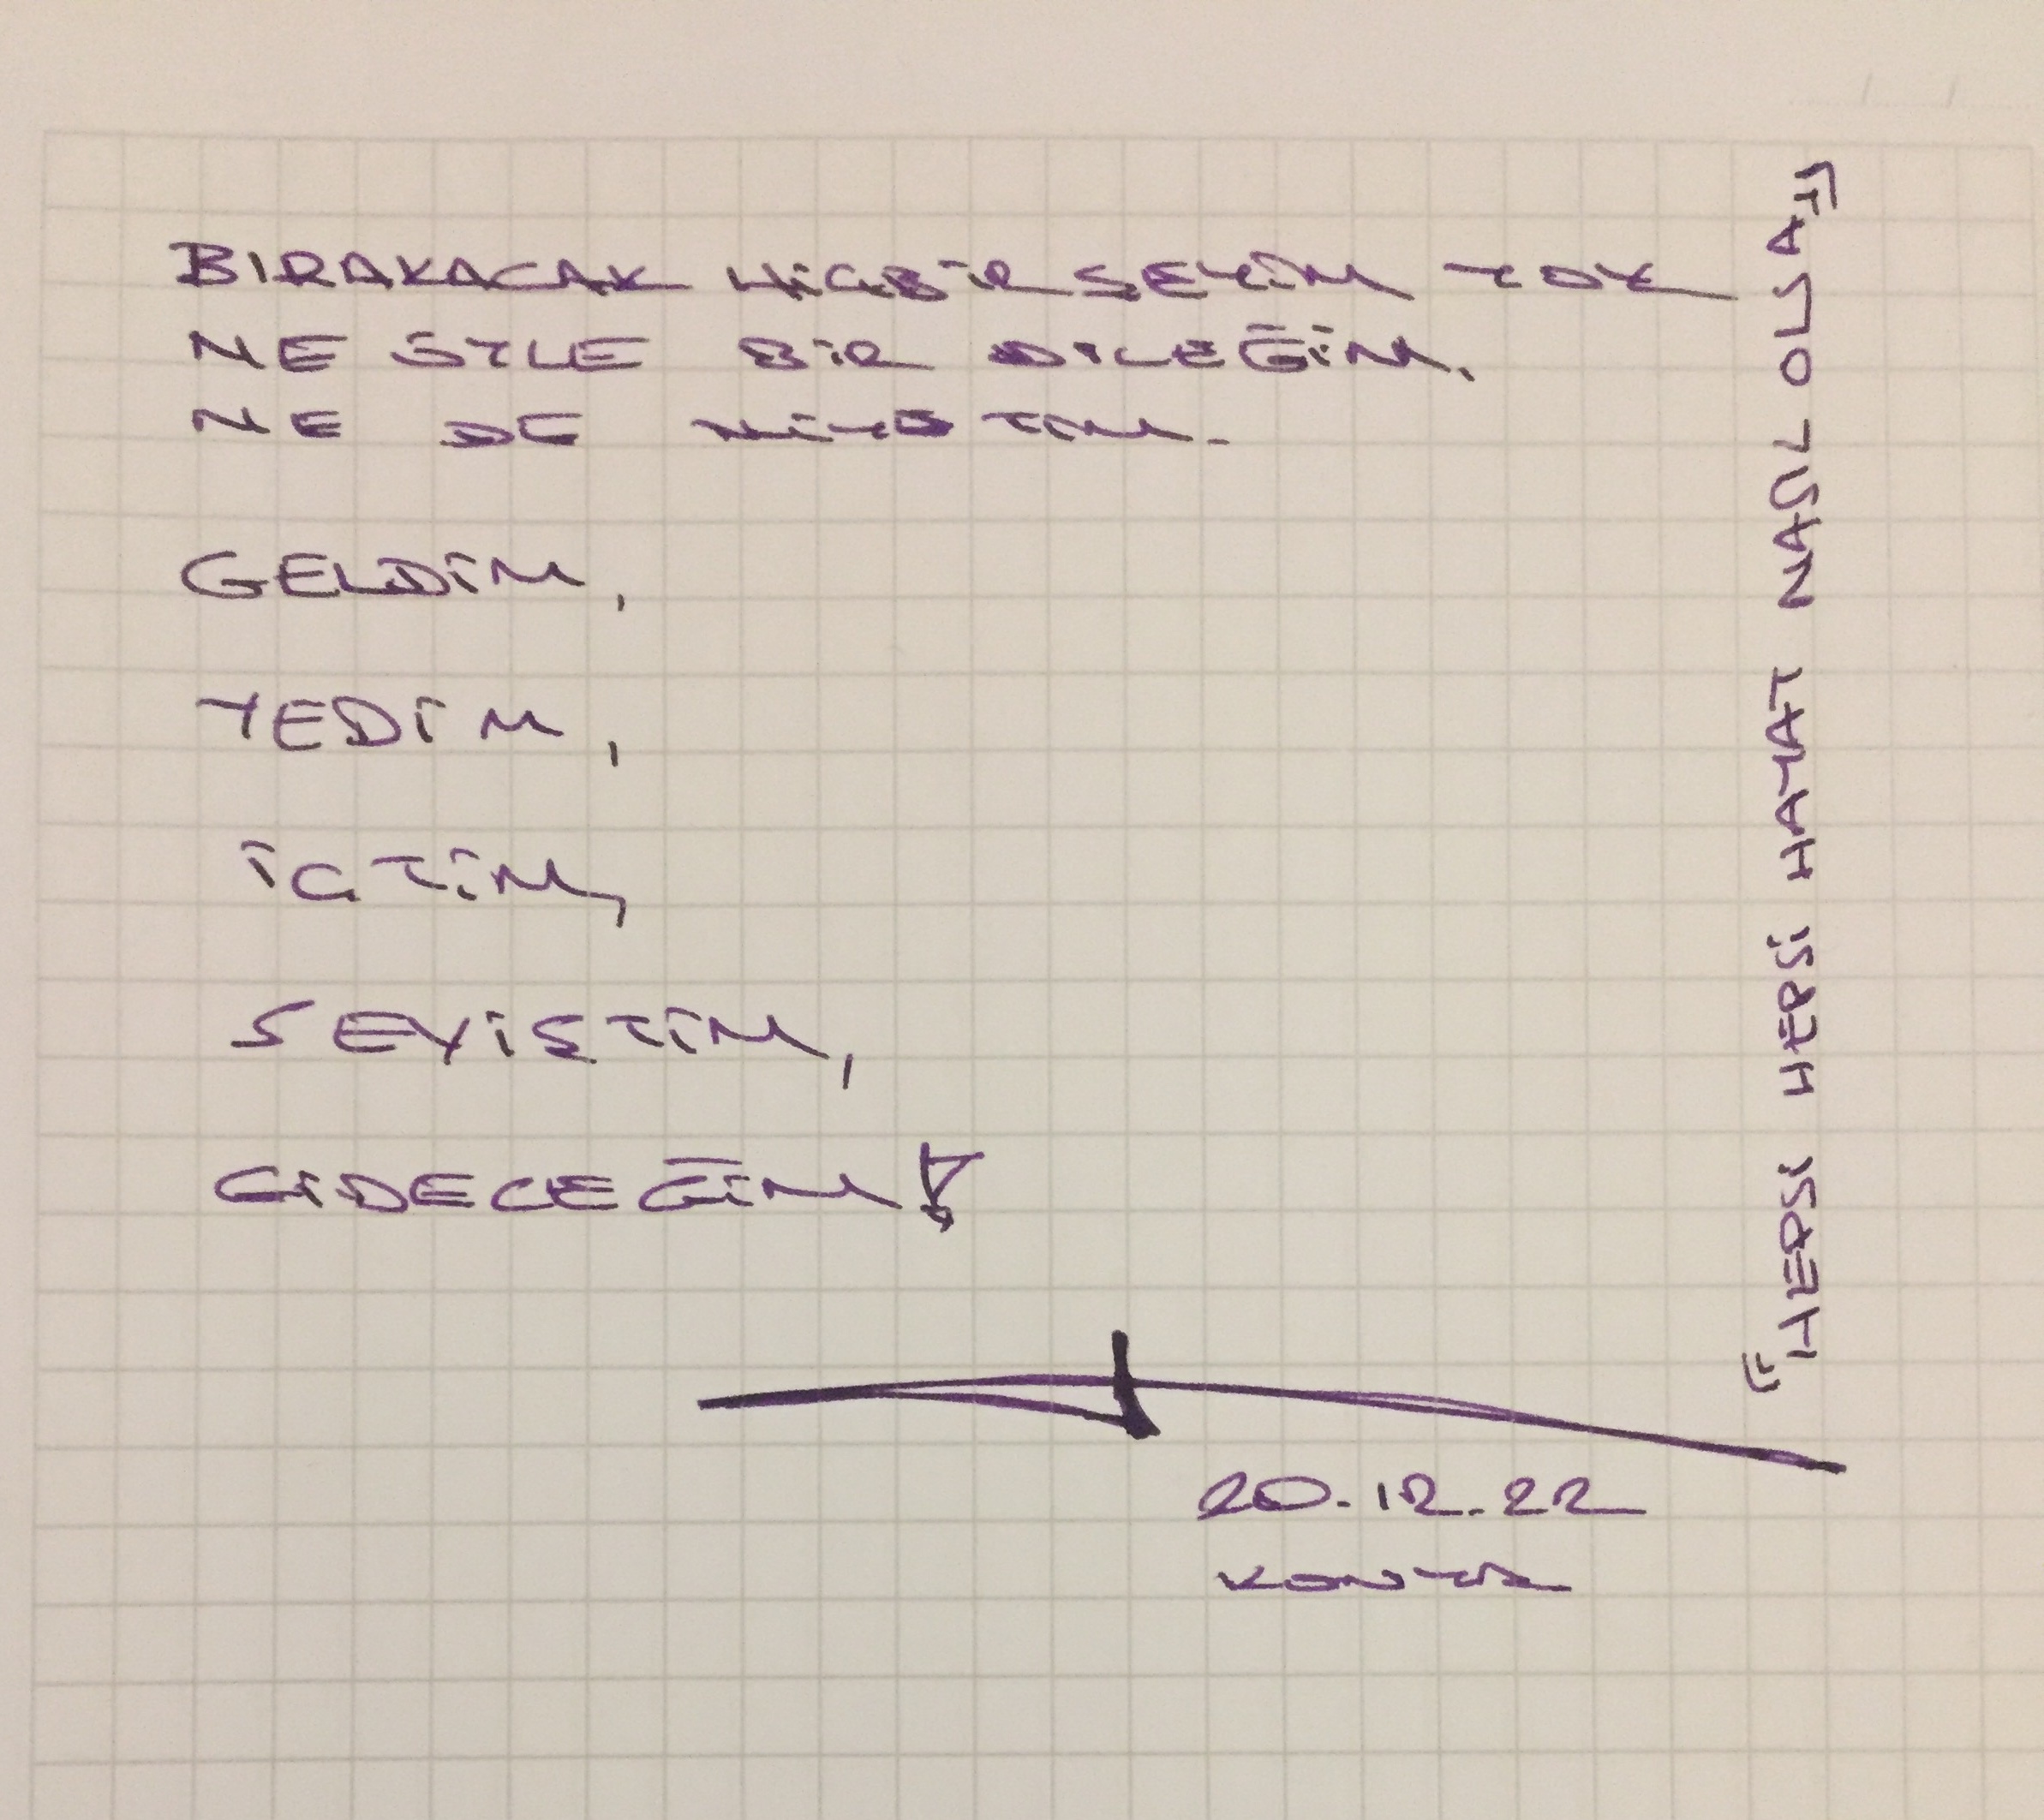 BIRAKACAK HİÇBİR ŞEYİM YOK
NE ŞÖYLE BİR DİLEĞİM,
NE DE NİYETİM.
GELDİM,
YEDİM,
İÇTİM,
SEVİŞTİM,
GİDECEĞİM!
20.12.22
KONYA
"HEPSİ HEPSİ HAYAT NASIL OLSA"